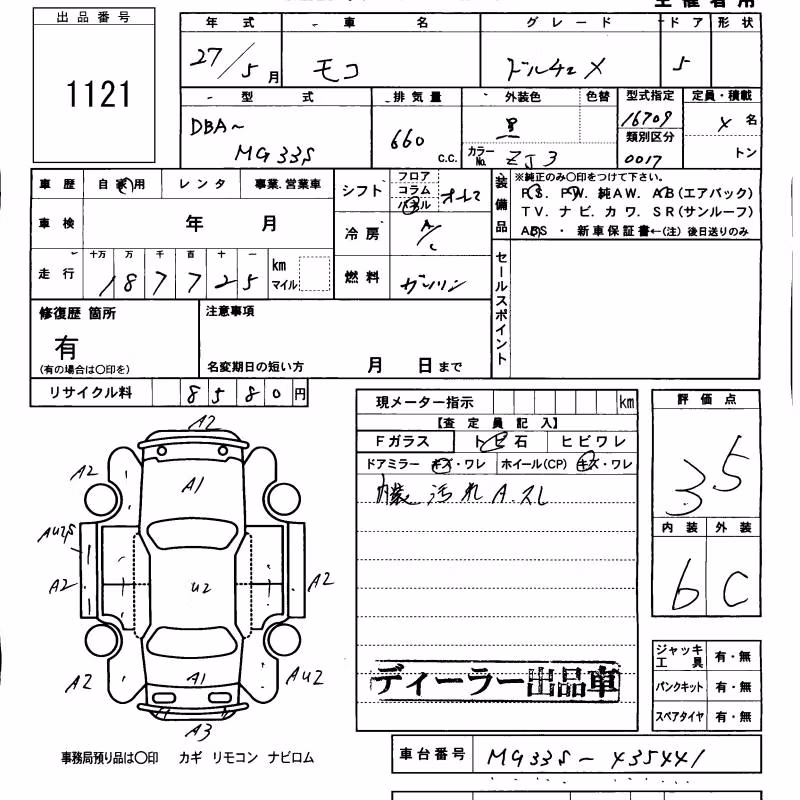 出品番号
1121
年式 車名 グレード ドア 形状
27/5月 モコ ドルチェX 5
型式 排気量 外装色 色替 型式指定 定員・積載
DBA~ MG33S 660 c.c. 黒 カラーNo. ZJ3 16709 4名
類別区分 0017 トン
車歴 自家用 レンタ 事業.営業車
シフト フロア コラム パネル オートマ
装備品 ※純正のみ○印をつけて下さい。
PS. PW. 純AW. AB(エアバック)
TV. ナビ. カワ. SR(サンルーフ)
ABS ・ 新車保証書←(注) 後日送りのみ
車検 年 月
冷房 A/C
走行 十万 万 千 百 十 一
187725 km マイル
燃料 ガソリン
セールスポイント
修復歴 箇所
有
(有の場合は○印を)
注意事項
名変期日の短い方 月 日まで
リサイクル料 8580円
現メーター指示 km
【査定員記入】
Fガラス トビ石 ヒビワレ
ドアミラー キズ・ワレ ホイール(CP) キズ・ワレ
内装 汚れ A.スレ
評価点
3.5
内装 外装
b C
A2
A2 A1
AU2S
A2 U2 A2
A2 A1 AU2
A3
ディーラー出品車
ジャッキ工具 有・無
パンクキット 有・無
スペアタイヤ 有・無
事務局預り品は○印 カギ リモコン ナビロム
車台番号 MG33S-435441